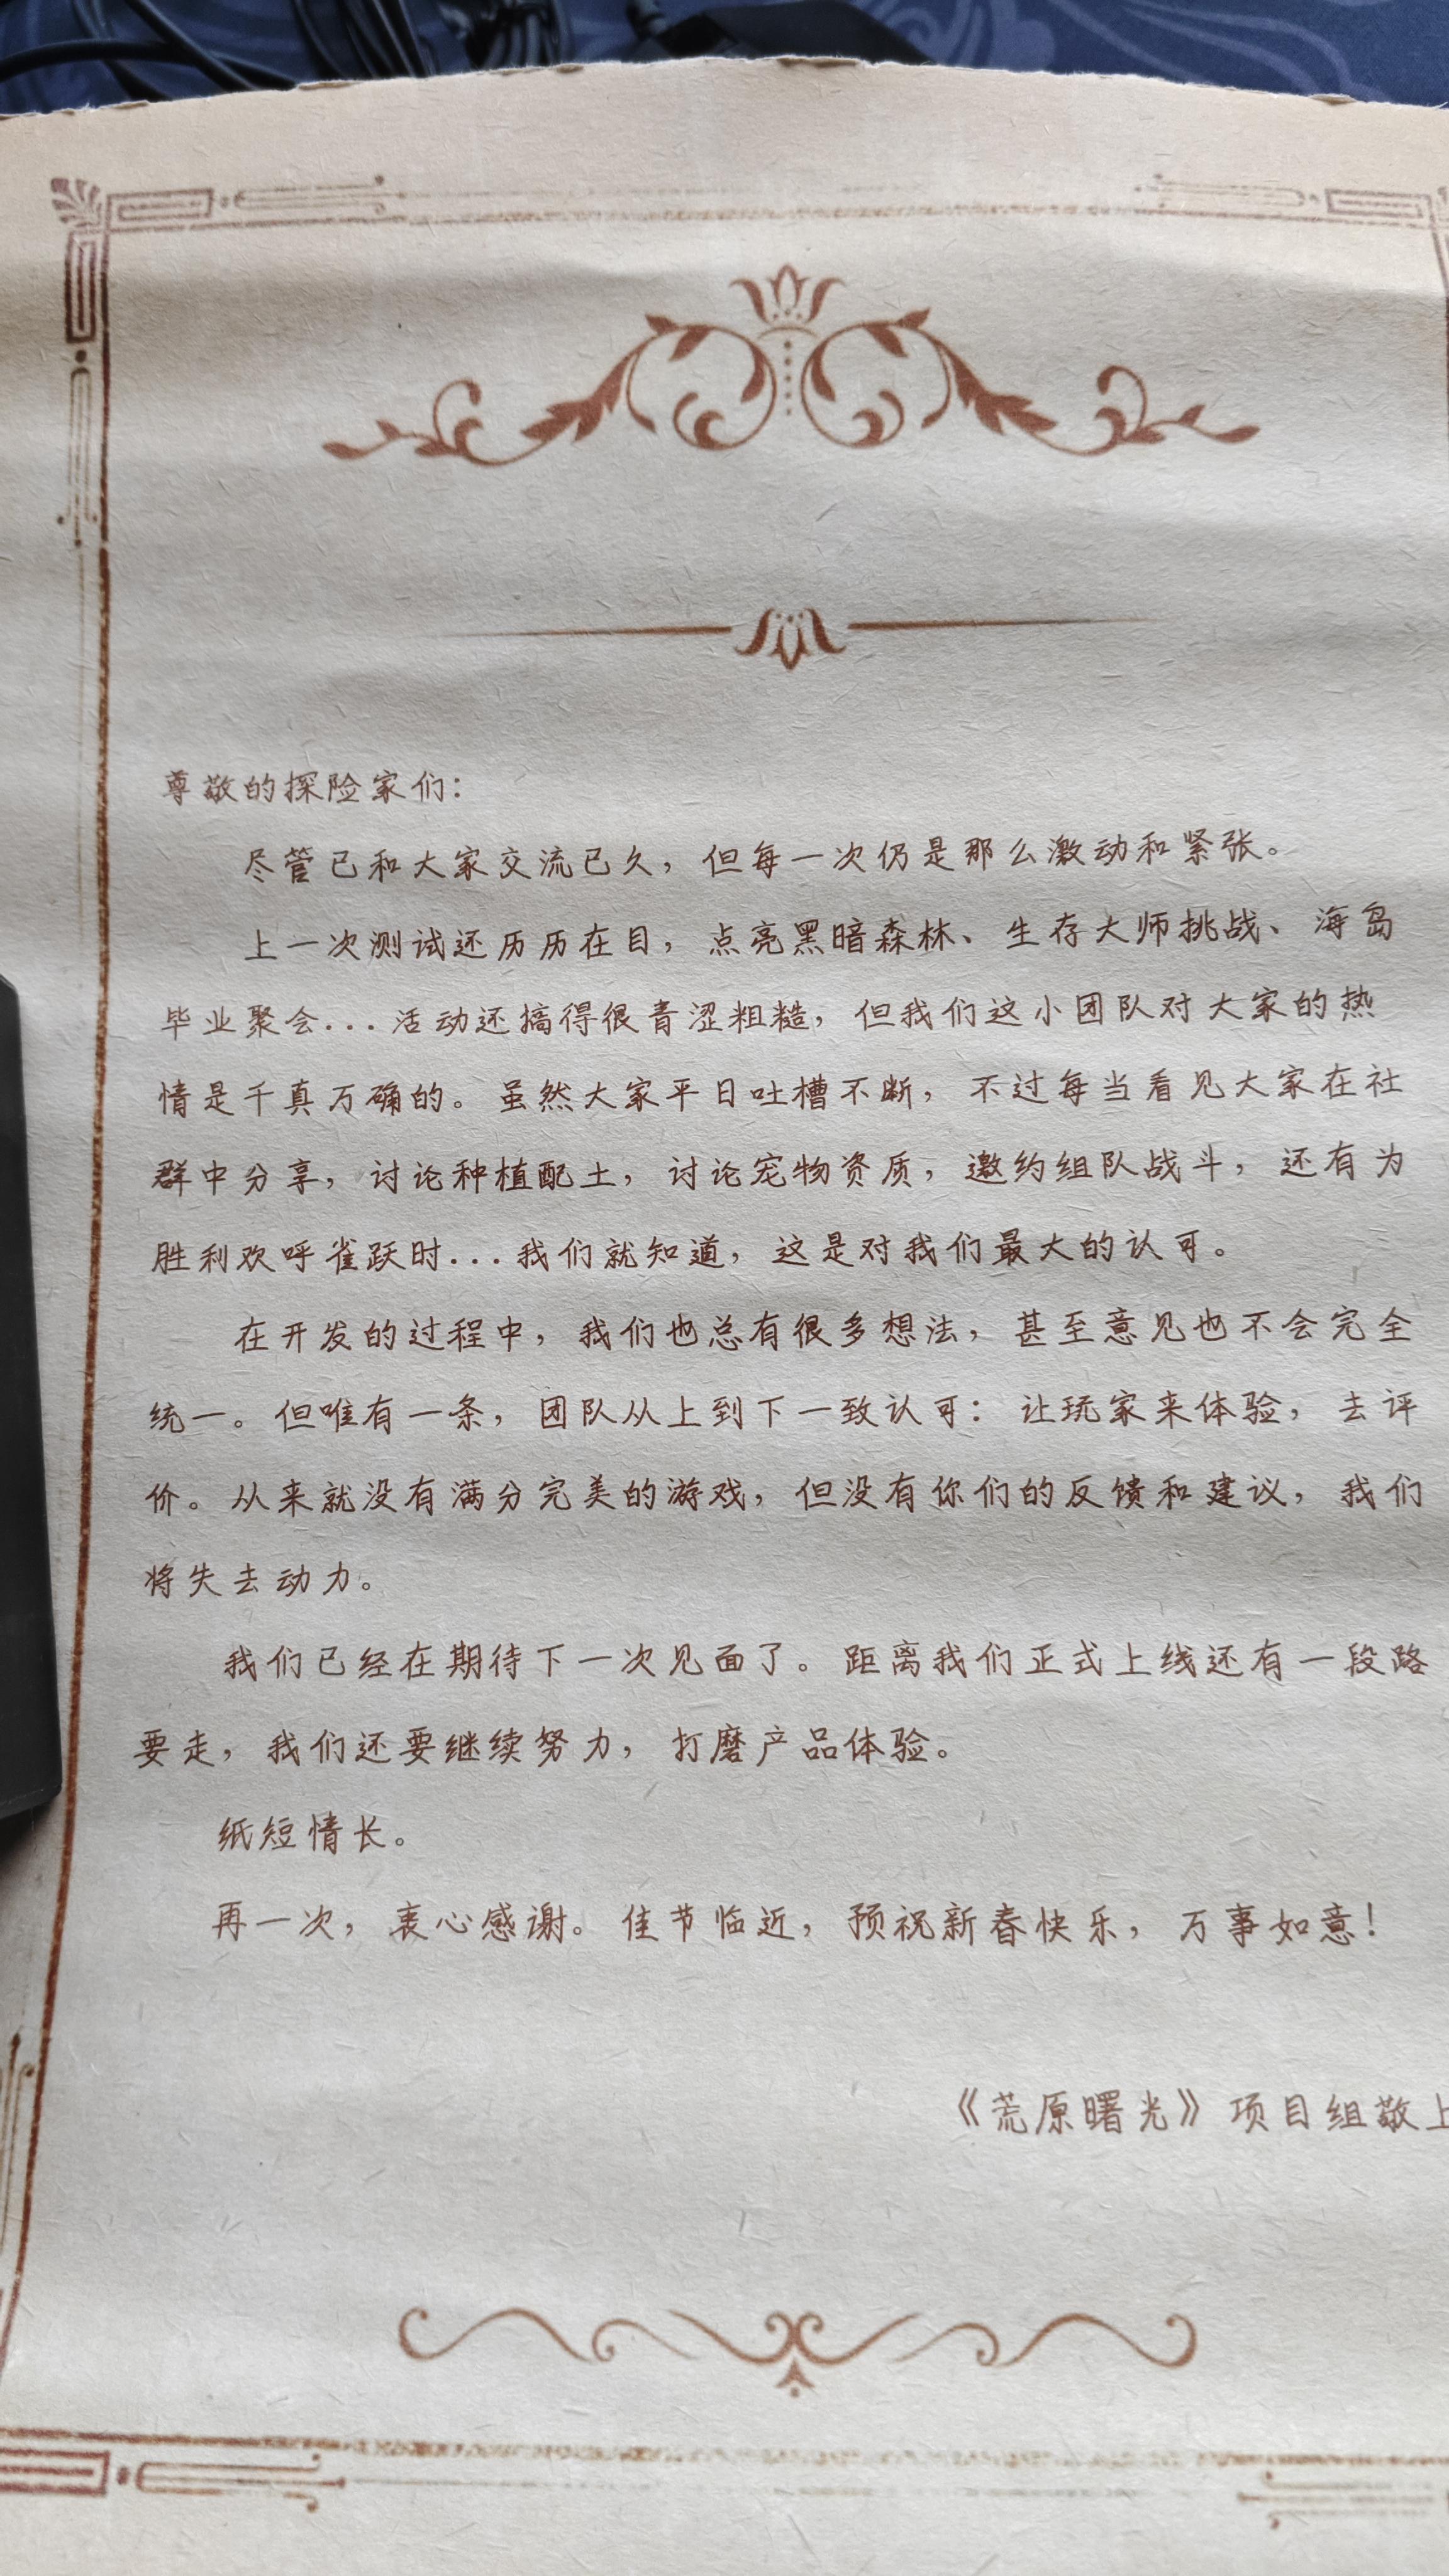 尊敬的探险家们：
尽管已和大家交流已久，但每一次仍是那么激动和紧张。
上一次测试还历历在目，点亮黑暗森林、生存大师挑战、海岛
毕业聚会...活动还搞得很青涩粗糙，但我们这小团队对大家的热
情是千真万确的。虽然大家平日吐槽不断，不过每当看见大家在社
群中分享，讨论种植配土，讨论宠物资质，邀约组队战斗，还有为
胜利欢呼雀跃时...我们就知道，这是对我们最大的认可。
在开发的过程中，我们也总有很多想法，甚至意见也不会完全
统一。但唯有一条，团队从上到下一致认可：让玩家来体验，去评
价。从来就没有满分完美的游戏，但没有你们的反馈和建议，我们
将失去动力。
我们已经在期待下一次见面了。距离我们正式上线还有一段路
要走，我们还要继续努力，打磨产品体验。
纸短情长。
再一次，衷心感谢。佳节临近，预祝新春快乐，万事如意！
《荒原曙光》项目组敬上